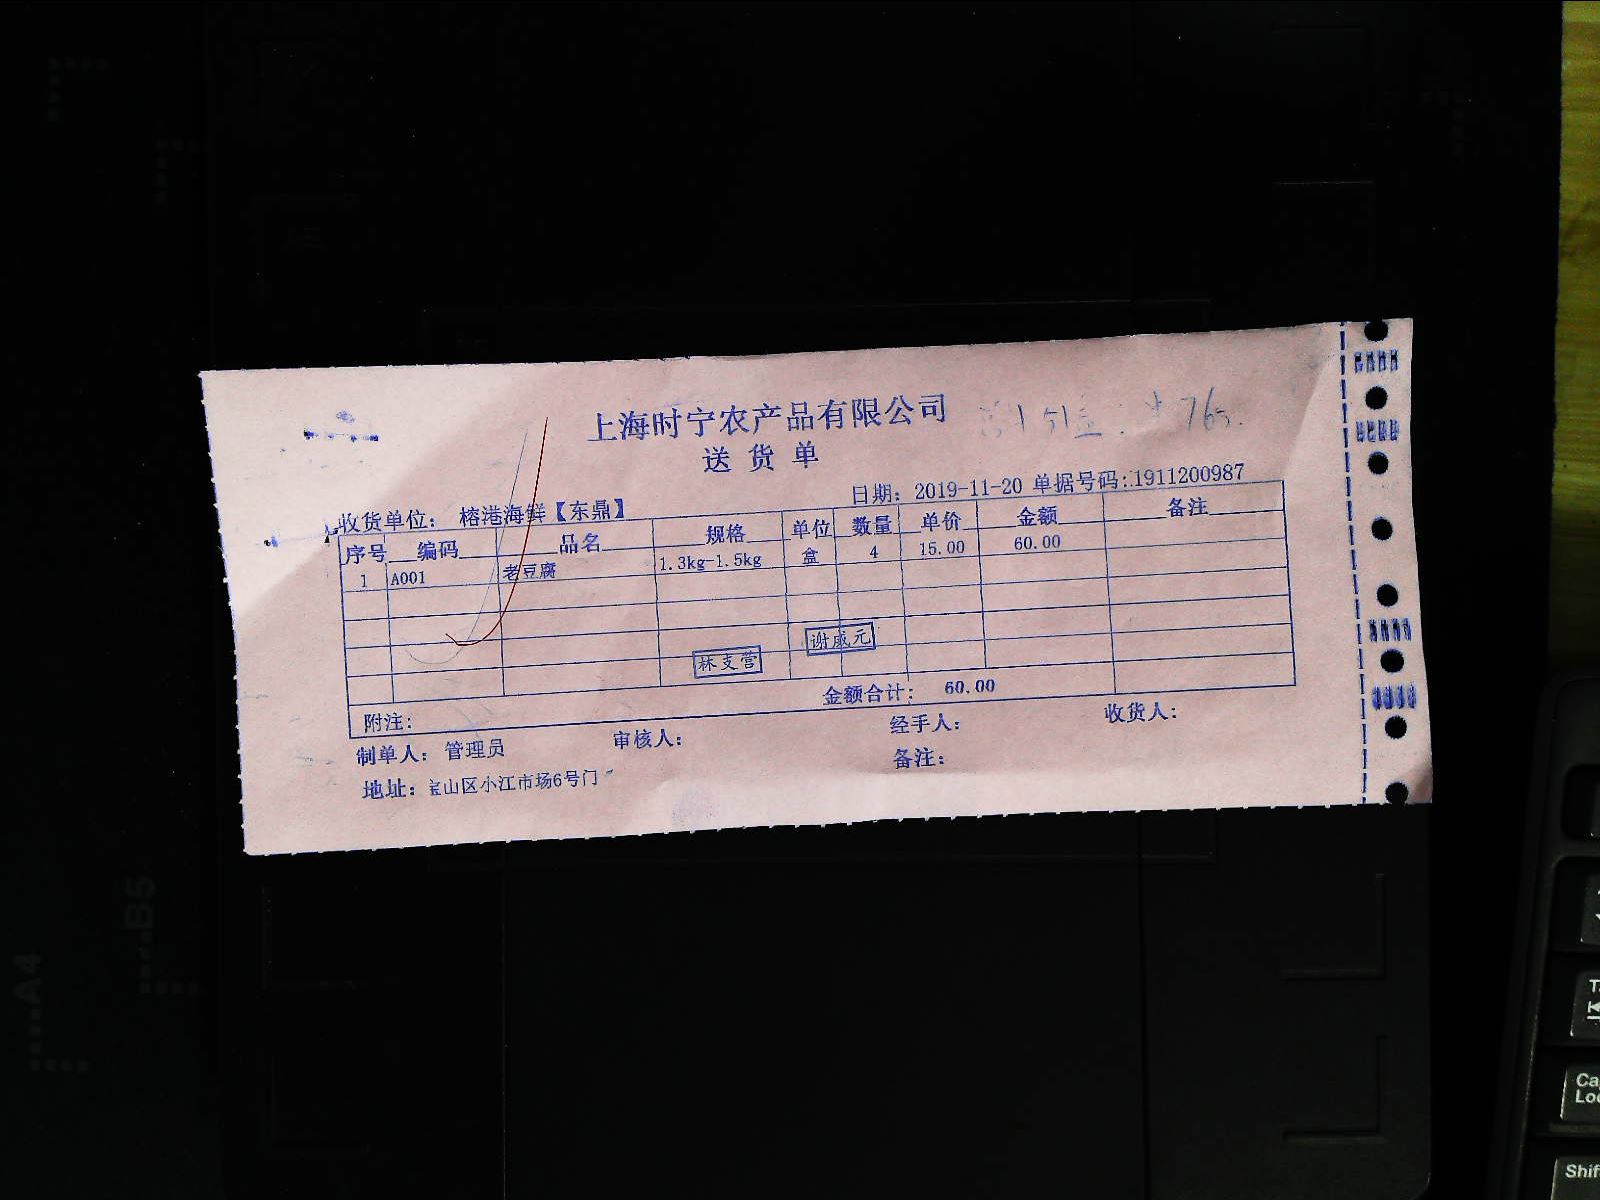 上海时宁农产品有限公司
51盒 765.
送货单
日期：2019-11-20 单据号码：1911200987
收货单位：榕港海鲜【东鼎】
序号 编码 品名 规格 单位 数量 单价 金额 备注
1 A001 老豆腐 1.3kg-1.5kg 盒 4 15.00 60.00
谢成元
林支营
金额合计： 60.00
附注：
制单人：管理员 审核人： 经手人： 收货人：
地址：宝山区小江市场6号门 备注：
A4
B5
Shif